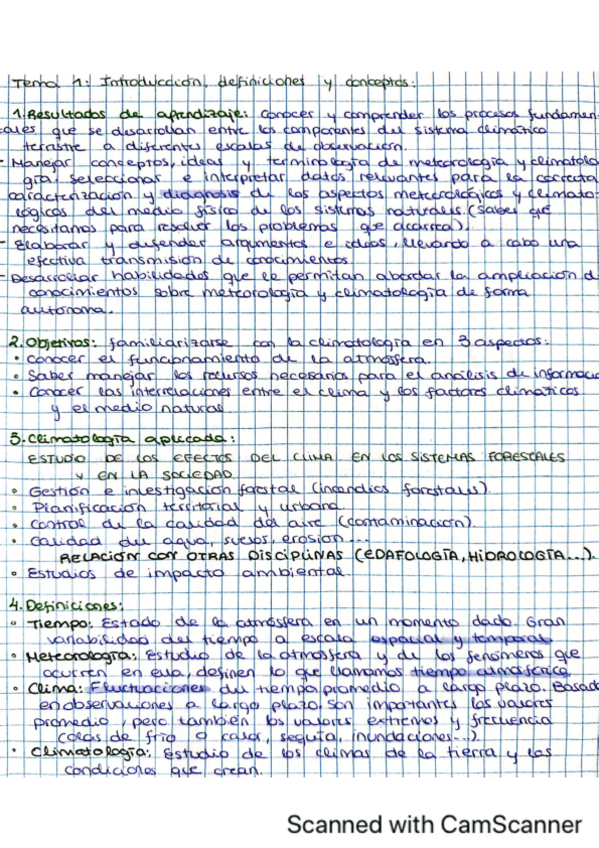 Tema 1: Introducción, definiciones y conceptos:
1. Resultados de aprendizaje: conocer y comprender los procesos fundamen
tales que se desarrollan entre los componentes del sistema climático
terrestre a diferentes escalas de observación.
- Manejar conceptos, ideas y terminología de meteorología y climatolo
gía, seleccionar e interpretar datos relevantes para la correcta
caracterización y diagnosis de los aspectos meteorológicos y climato
lógicos del medio físico de los sistemas naturales (saber qué
necesitamos para resolver los problemas que acarrea).
- Elaborar y defender argumentos e ideas, llevando a cabo una
efectiva transmisión de conocimientos.
- Desarrollar habilidades que le permitan abordar la ampliación d
conocimientos sobre meteorología y climatología de forma
autónoma.
2. Objetivos: familiarizarse con la climatología en 3 aspectos:
• Conocer el funcionamiento de la atmósfera.
• Saber manejar los recursos necesarios para el análisis de informac
• Conocer las interrelaciones entre el clima y los factores climáticos
y el medio natural
3. Climatología aplicada:
ESTUDIO DE LOS EFECTOS DEL CLIMA EN LOS SISTEMAS FORESTALES
Y EN LA SOCIEDAD
• Gestión e investigación forestal (incendios forestales).
• Planificación territorial y urbana.
• Control de la calidad del aire (contaminación).
• Calidad del agua, suelos, erosión...
RELACIÓN CON OTRAS DISCIPLINAS (EDAFOLOGÍA, HIDROLOGÍA...).
• Estudios de impacto ambiental.
4. Definiciones:
• Tiempo: Estado de la atmósfera en un momento dado. Gran
variabilidad del tiempo a escala espacial y temporal
• Meteorología: Estudio de la atmósfera y de los fenómenos que
ocurren en ella, definen lo que llamamos tiempo atmosférico
• Clima: Fluctuaciones del tiempo promedio a largo plazo. Basad
en observaciones a largo plazo. son importantes los valores
promedio, pero también los valores extremos y frecuencia
(olas de frío o calor, sequía, inundaciones...).
• Climatología: Estudio de los climas de la tierra y las
condiciones que crean.
Scanned with CamScanner